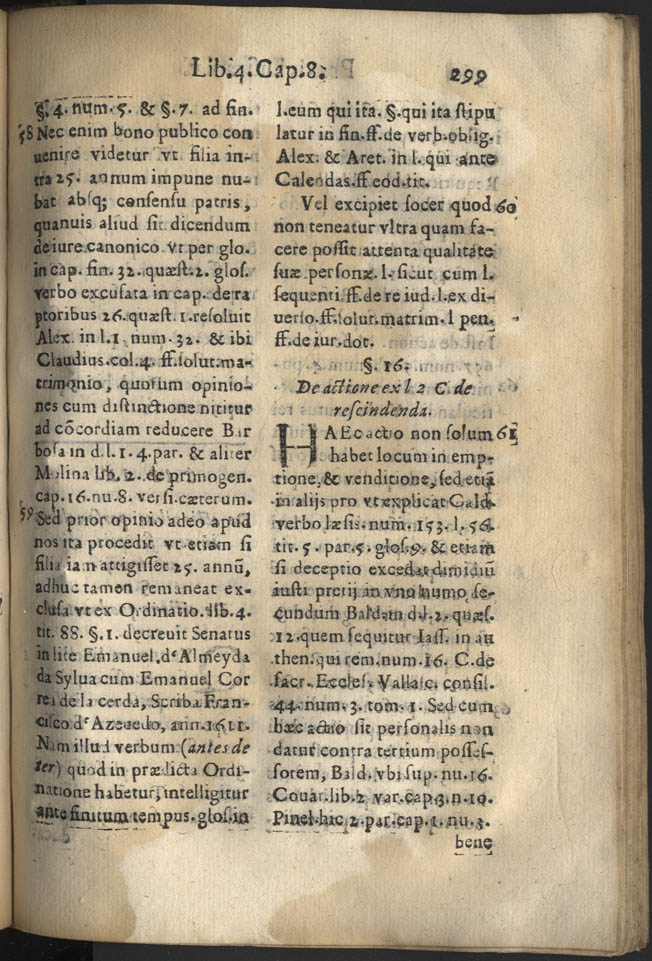 Lib.4.Cap.8. 299
§. 4. num. 5. & §. 7. ad fin.
58 Nec enim bono publico con
uenire videtur vt filia in-
tra 25. annum impune nu-
bat absq; consensu patris,
quanuis aliud sit dicendum
de iure canonico vt per glo.
in cap. fin. 32. quæst. 2. glos.
verbo excusata in cap. de ra
ptoribus 26. quæst. 1. resoluit
Alex. in l. 1. num. 32. & ibi
Claudius. col. 4. ff. solut. ma-
trimonio, quorum opinio-
nes cum distinctione nititur
ad cõcordiam reducere Bar
bosa in d. l. 1. 4. par. & aliter
Molina lib. 2. de primogen.
cap. 16. nu. 8. versi. cæterum.
59 Sed prior opinio adeo apud
nos ita procedit vt etiam si
filia iam attigisset 25. annũ,
adhuc tamen remaneat ex-
clusa vt ex Ordinatio. lib. 4.
tit. 88. §. 1. decreuit Senatus
in lite Emanuel. d'Almeyda
da Sylua cum Emanuel Cor
rea de la cerda, Scriba Fran-
cisco d'Azeuedo, ann. 1611.
Nam illud verbum (antes de
ter) quod in prædicta Ordi-
natione habetur, intelligitur
ante finitum tempus. glos. in
l. eum qui ita. §. qui ita stipu
latur in fin. ff. de verb. oblig.
Alex. & Aret. in l. qui ante
Calendas. ff. eod. tit.
Vel excipiet socer quod 60
non teneatur vltra quam fa-
cere possit attenta qualitate
suæ personæ. l. sicut cum l.
sequenti. ff. de re iud. l. ex di-
uerso. ff. solut. matrim. l pen.
ff. de iur. dot.
§. 16.
De actione ex l 2 C. de
rescindenda.
HAEc actio non solum 61
habet locum in emp-
tione, & venditione, sed etiã
in alijs pro vt explicat Gald.
verbo læsis. num. 153. l. 56.
tit. 5. par. 5. glos. 9. & etiam
si deceptio excedat dimidiũ
iusti pretij in vno numo, se-
cundum Baldum d. l. 2. quæs.
12. quem sequitur Iass. in au
then. qui rem. num. 16. C. de
sacr. Eccles. Vallasc. consil.
44. num. 3. tom. 1. Sed cum
hæc actio sit personalis non
datur contra tertium posses-
sorem, Bald. vbi sup. nu. 16.
Couar. lib. 2 var. cap. 3. n. 10.
Pinel. hic 2. par. cap. 1. nu. 3.
bene